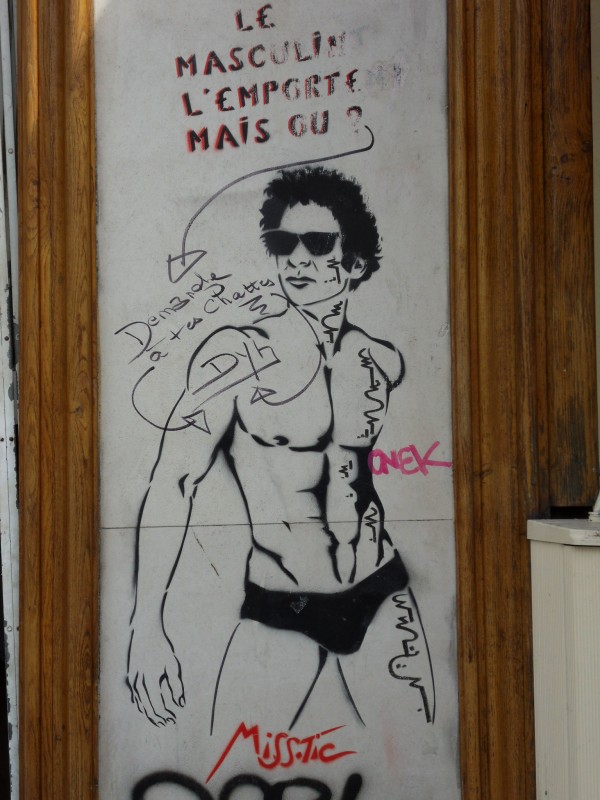 LE
MASCULIN
L'EMPORTE
MAIS OU ?
Demande
à tes chattes
Dyh
ONEK
MISS.TIC